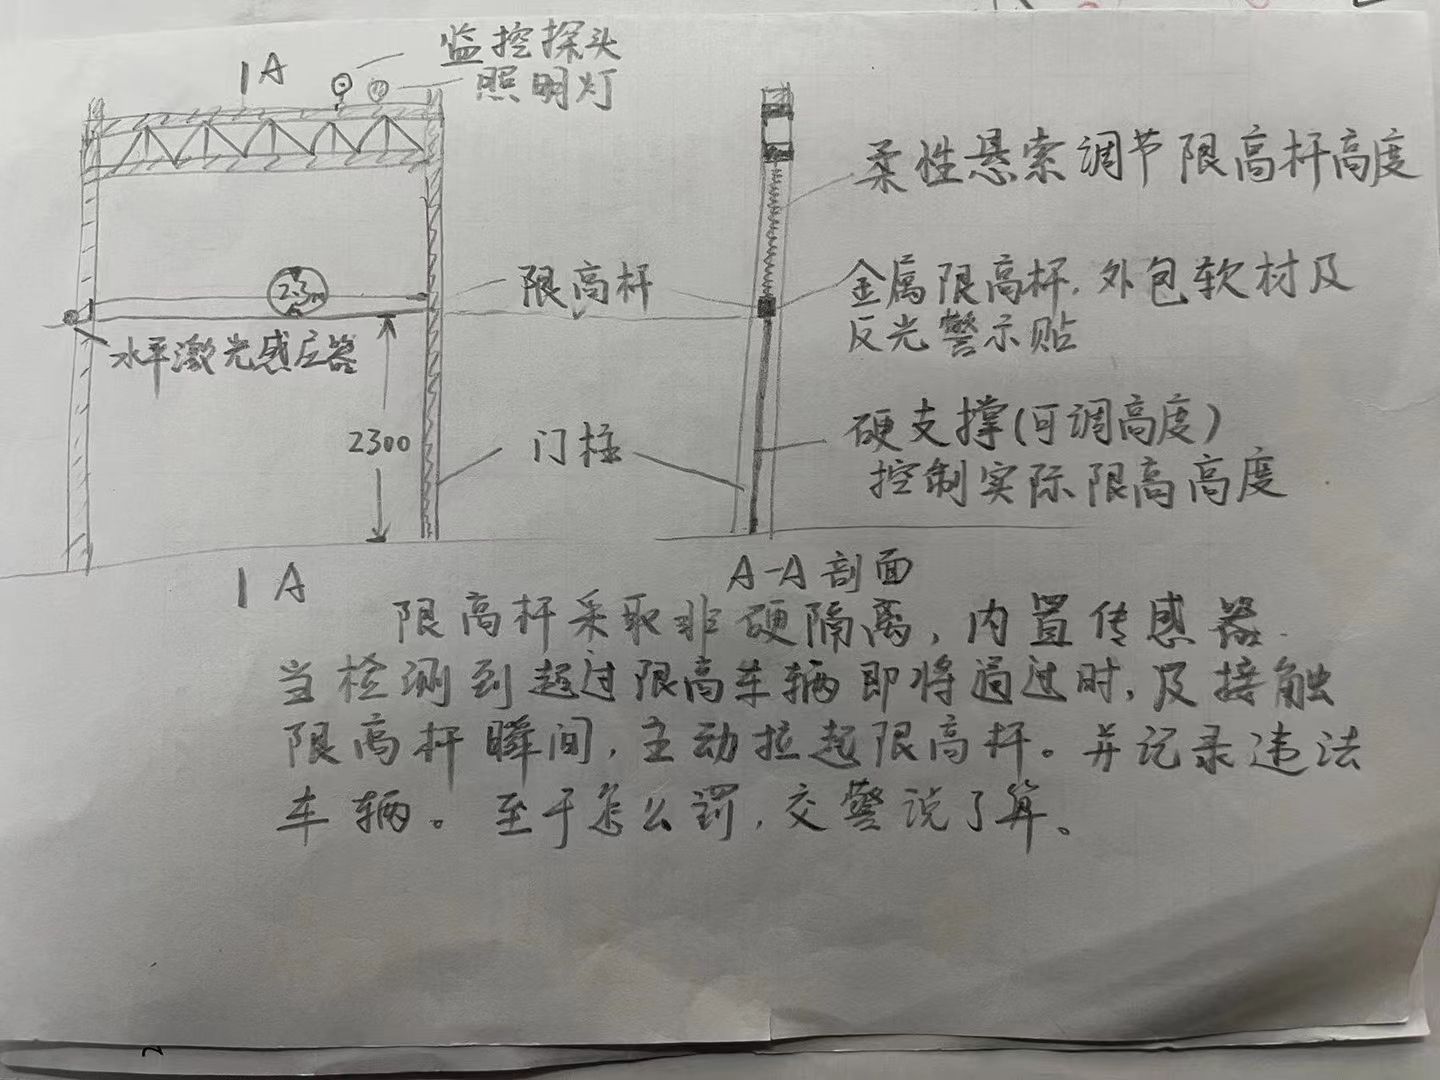 监控探头
1A
照明灯
柔性悬索调节限高杆高度
限高杆
金属限高杆.外包软材及
反光警示贴
2.3m
水平激光感应器
2300
门柱
硬支撑(可调高度)
控制实际限高高度
1A
A-A剖面
限高杆采取非硬隔离,内置传感器.
当检测到超过限高车辆即将通过时,及接触
限高杆瞬间,主动拉起限高杆。并记录违法
车辆。至于怎么罚,交警说了算。
2